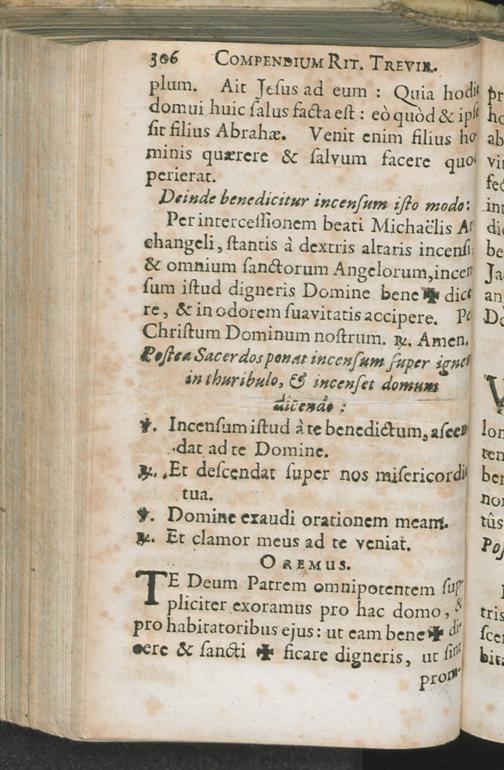 306 COMPENDIUM RIT. TREVIR.
plum. Ait Jesus ad eum : Quia hodie
domui huic salus facta est : eò quòd & ipse
sit filius Abrahæ. Venit enim filius ho-
minis quærere & salvum facere quod
perierat.
Deinde benedicitur incensum isto modo:
Per intercessionem beati Michaëlis Ar-
changeli, stantis à dextris altaris incensi,
& omnium sanctorum Angelorum, incen-
sum istud digneris Domine bene ✠ dice-
re, & in odorem suavitatis accipere. Per
Christum Dominum nostrum. ℟. Amen.
Postea Sacerdos ponat incensum super ignem
in thuribulo, & incenset domum
dicendo :
℣. Incensum istud à te benedictum, ascen-
dat ad te Domine.
℟. Et descendat super nos misericordia
tua.
℣. Domine exaudi orationem meam.
℟. Et clamor meus ad te veniat.
OREMUS.
TE Deum Patrem omnipotentem sup-
pliciter exoramus pro hac domo, &
pro habitatoribus ejus: ut eam bene ✠ di-
cere & sancti ✠ ficare digneris, ut sint
prom-